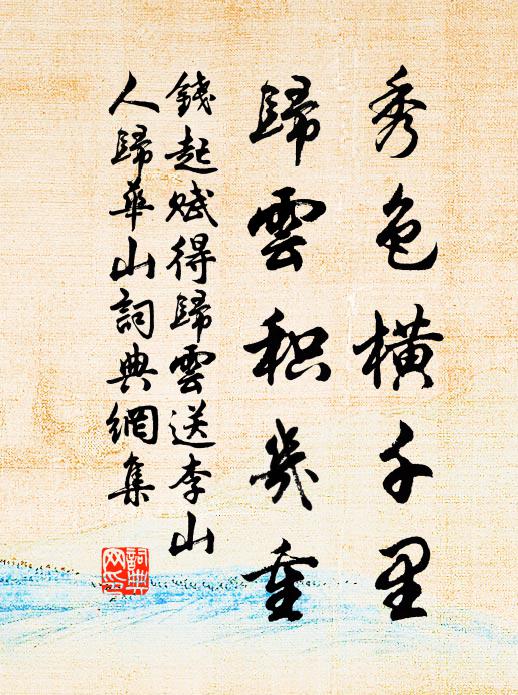 秀色橫千里
歸雲积幾重
錢起賦得歸雲送李山
人歸華山詞典網集
詞典
网匀